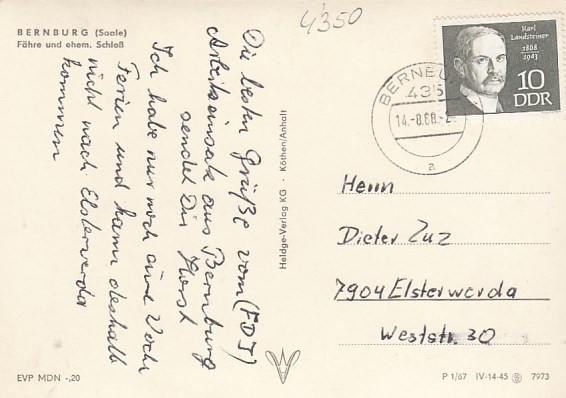 BERNBURG (Saale)
Fähre und ehem. Schloß
4350
Die besten Grüße vom (FDJ)
Arbeitseinsatz aus Bernburg
sendet Dir Horst
Ich habe nur noch eine Woche
Ferien und kann deshalb
nicht nach Elsterwerda
kommen
Heldge-Verlag KG · Köthen/Anhalt
Karl
Landsteiner
1868
1943
10
DDR
435
14.-8.68.-2
a
Herrn
Dieter Zuz
7904 Elsterwerda
Weststr. 30
EVP MDN -,20
P 1/67 IV-14-45 7973